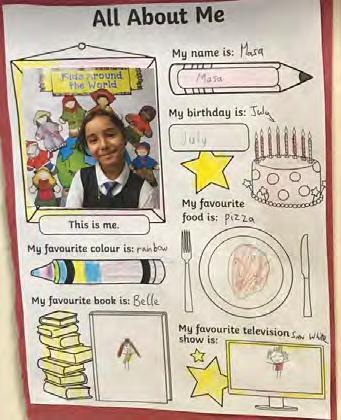 All About Me
Kids Around
the World
This is me.
My name is: Masa
Masa
My birthday is: July
July
My favourite
food is: pizza
My favourite colour is: rainbow
My favourite book is: Belle
My favourite television Snow White
show is: